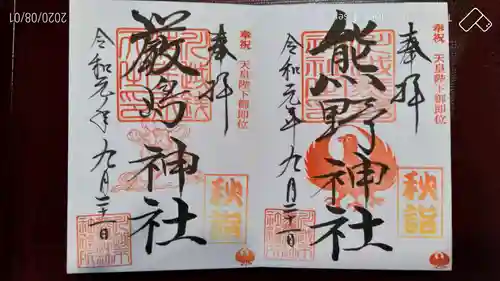 2020/08/01
奉祝 天皇陛下御即位
奉拝
熊野神社
令和元年 九月二十一日
秋詣
奉祝 天皇陛下御即位
奉拝
厳嶋神社
令和元年 九月二十一日
秋詣